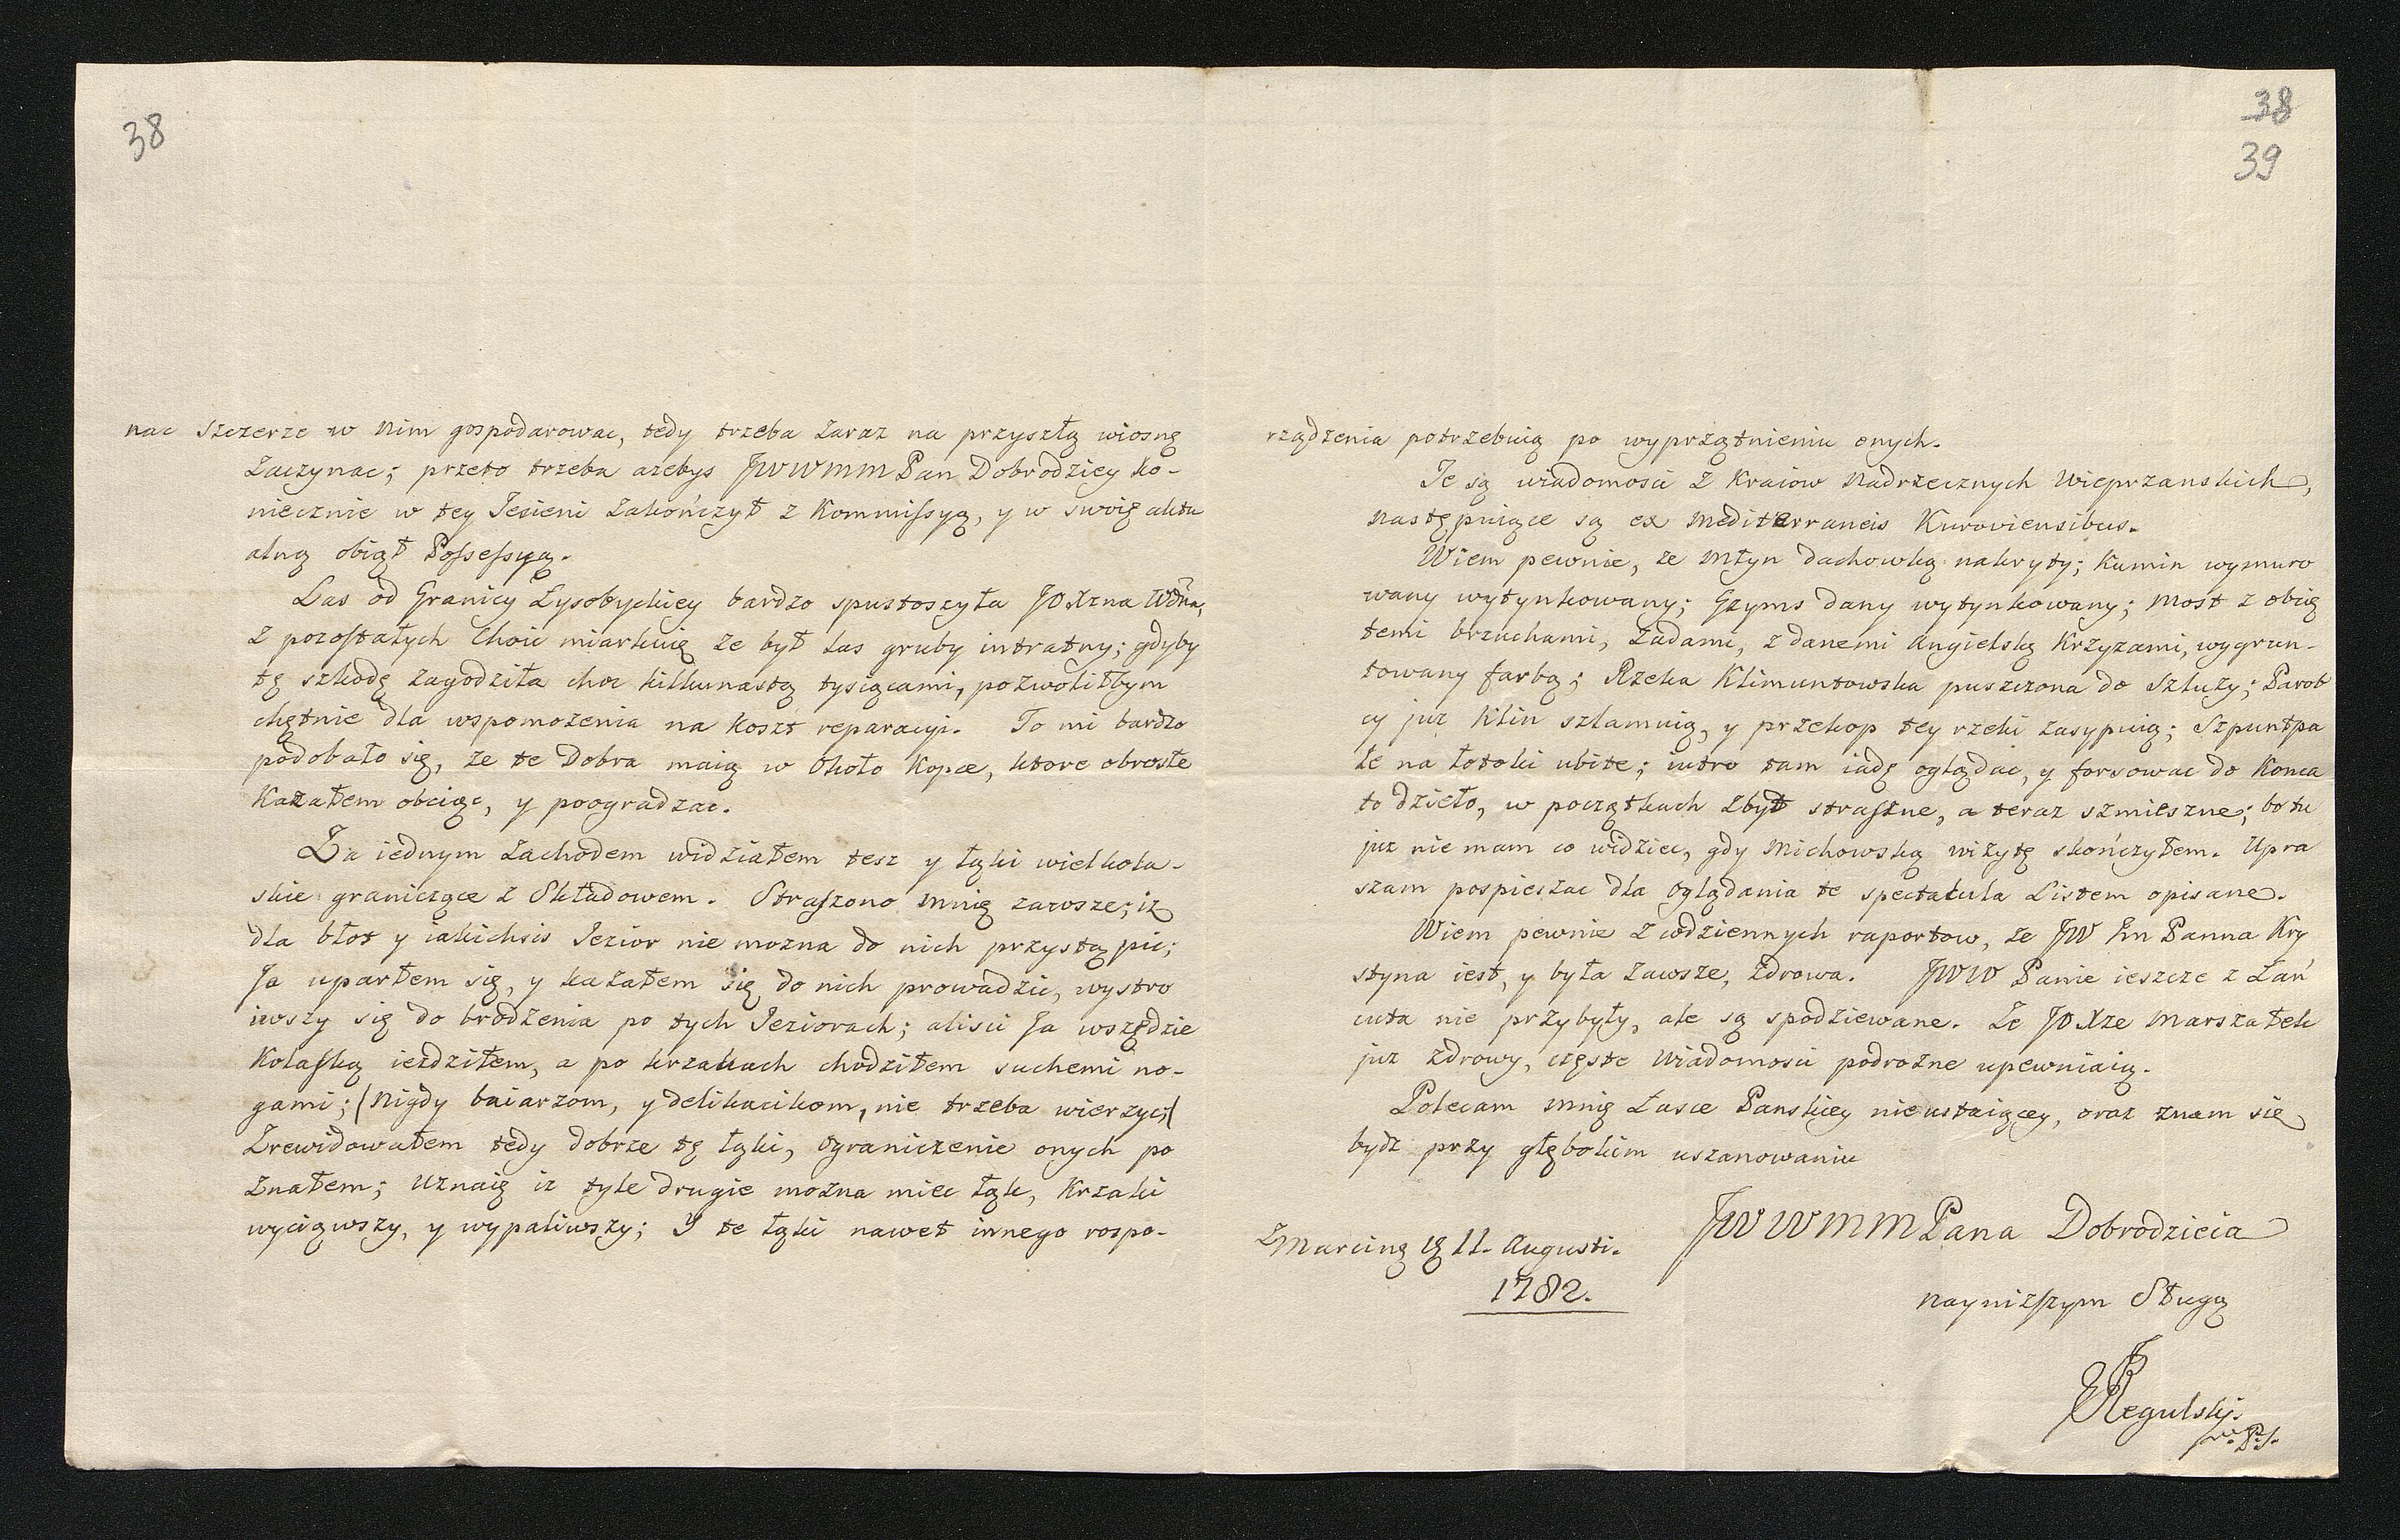 38
nac szczerze w nim gospodarowac, tedy trzeba zaraz na przyszłą wiosnę
zaczynac; przeto trzeba azebys JWWMM Pan Dobrodziey ko-
niecznie w tey Jesieni zakończył z Kommissyą, y w swoię aktu
alną obiął Possessyą.
Las od Granicy Łysobyckiey bardzo spustoszyła JOXzna Wdna,
z pozostałych Choic miarkuię ze był las gruby intratny; gdyby
tę szkodę zagodziła choc kilkunastą tysiącami, pozwoliłbym
chętnie dla wspomozenia na koszt reparacyi. To mi bardzo
podobało się, ze te Dobra maią w około Kopce, ktore obrosłe
Kazałem obciąc, y poogradzac.
Za iednym zachodem widziałem tesz y łąki wielkola-
skie graniczące z Składowem. Straszono mnię zawsze; iz
dla błot y iakichsis Jezior nie mozna do nich przystąpic;
Ja uparłem się, y kazałem się do nich prowadzic, wystro
iwszy się do brodzenia po tych Jeziorach; alisci Ja wszędzie
Kolaską iezdziłem, a po krzakach chodziłem suchemi no-
gami; (Nigdy baiarzom, y delikacikom, nie trzeba wierzyc;)
Zrewidowałem tedy dobrze tę łąki, ograniczenie onych po
znałem; uznaię iz tyle drugie mozna miec łąk, Krzaki
wyciąwszy, y wypaliwszy; Y te łąki nawet innego rospo-
38
39
rządzenia potrzebuią po wyprzątnieniu onych.
Te są wiadomosci z Kraiow Nadrzecznych Wieprzanskich,
następuiące są ex Mediterraneis Kuroviensibus.
Wiem pewnie, ze Młyn dachowką nakryty; Kumin wymuro
wany wytynkowany; Gzyms dany wytynkowany; Most z obię
temi brzuchami, zadami, z danemi Angielską Krzyzami, wygrun-
towany farbą; Rzeka Klimuntowska puszczona do Szluzy; Parob
cy juz Klin szlamuią, y przekop tey rzeki zasypuią; Szpuntpa
le na łotoki ubite; iutro tam iadę oglądac, y forsowac do Konca
to dzieło, w początkach zbyt straszne, a teraz szmieszne; bo tu
juz nie mam co widziec, gdy Michowską wizytę skończyłem. Upra
szam pospieszac dla oglądania te spectakula Listem opisane.
Wiem pewnie z codziennych raportow, ze JW Panna Kry
styna iest, y była zawsze, zdrowa. JWW Panie ieszcze z Łań
cuta nie przybyły, ale są spodziewane. Ze JOXze Marszałek
juz zdrowy, częste wiadomosci podrozne upewniaią.
Polecam mnię Łasce Panskiey nieustaiącey, oraz znam się
bydz przy głębokim uszanowaniu
JWWMM Pana Dobrodzieia
z Marcina 11. Augusti.
1782.
naynizszym Sługą
Regulski